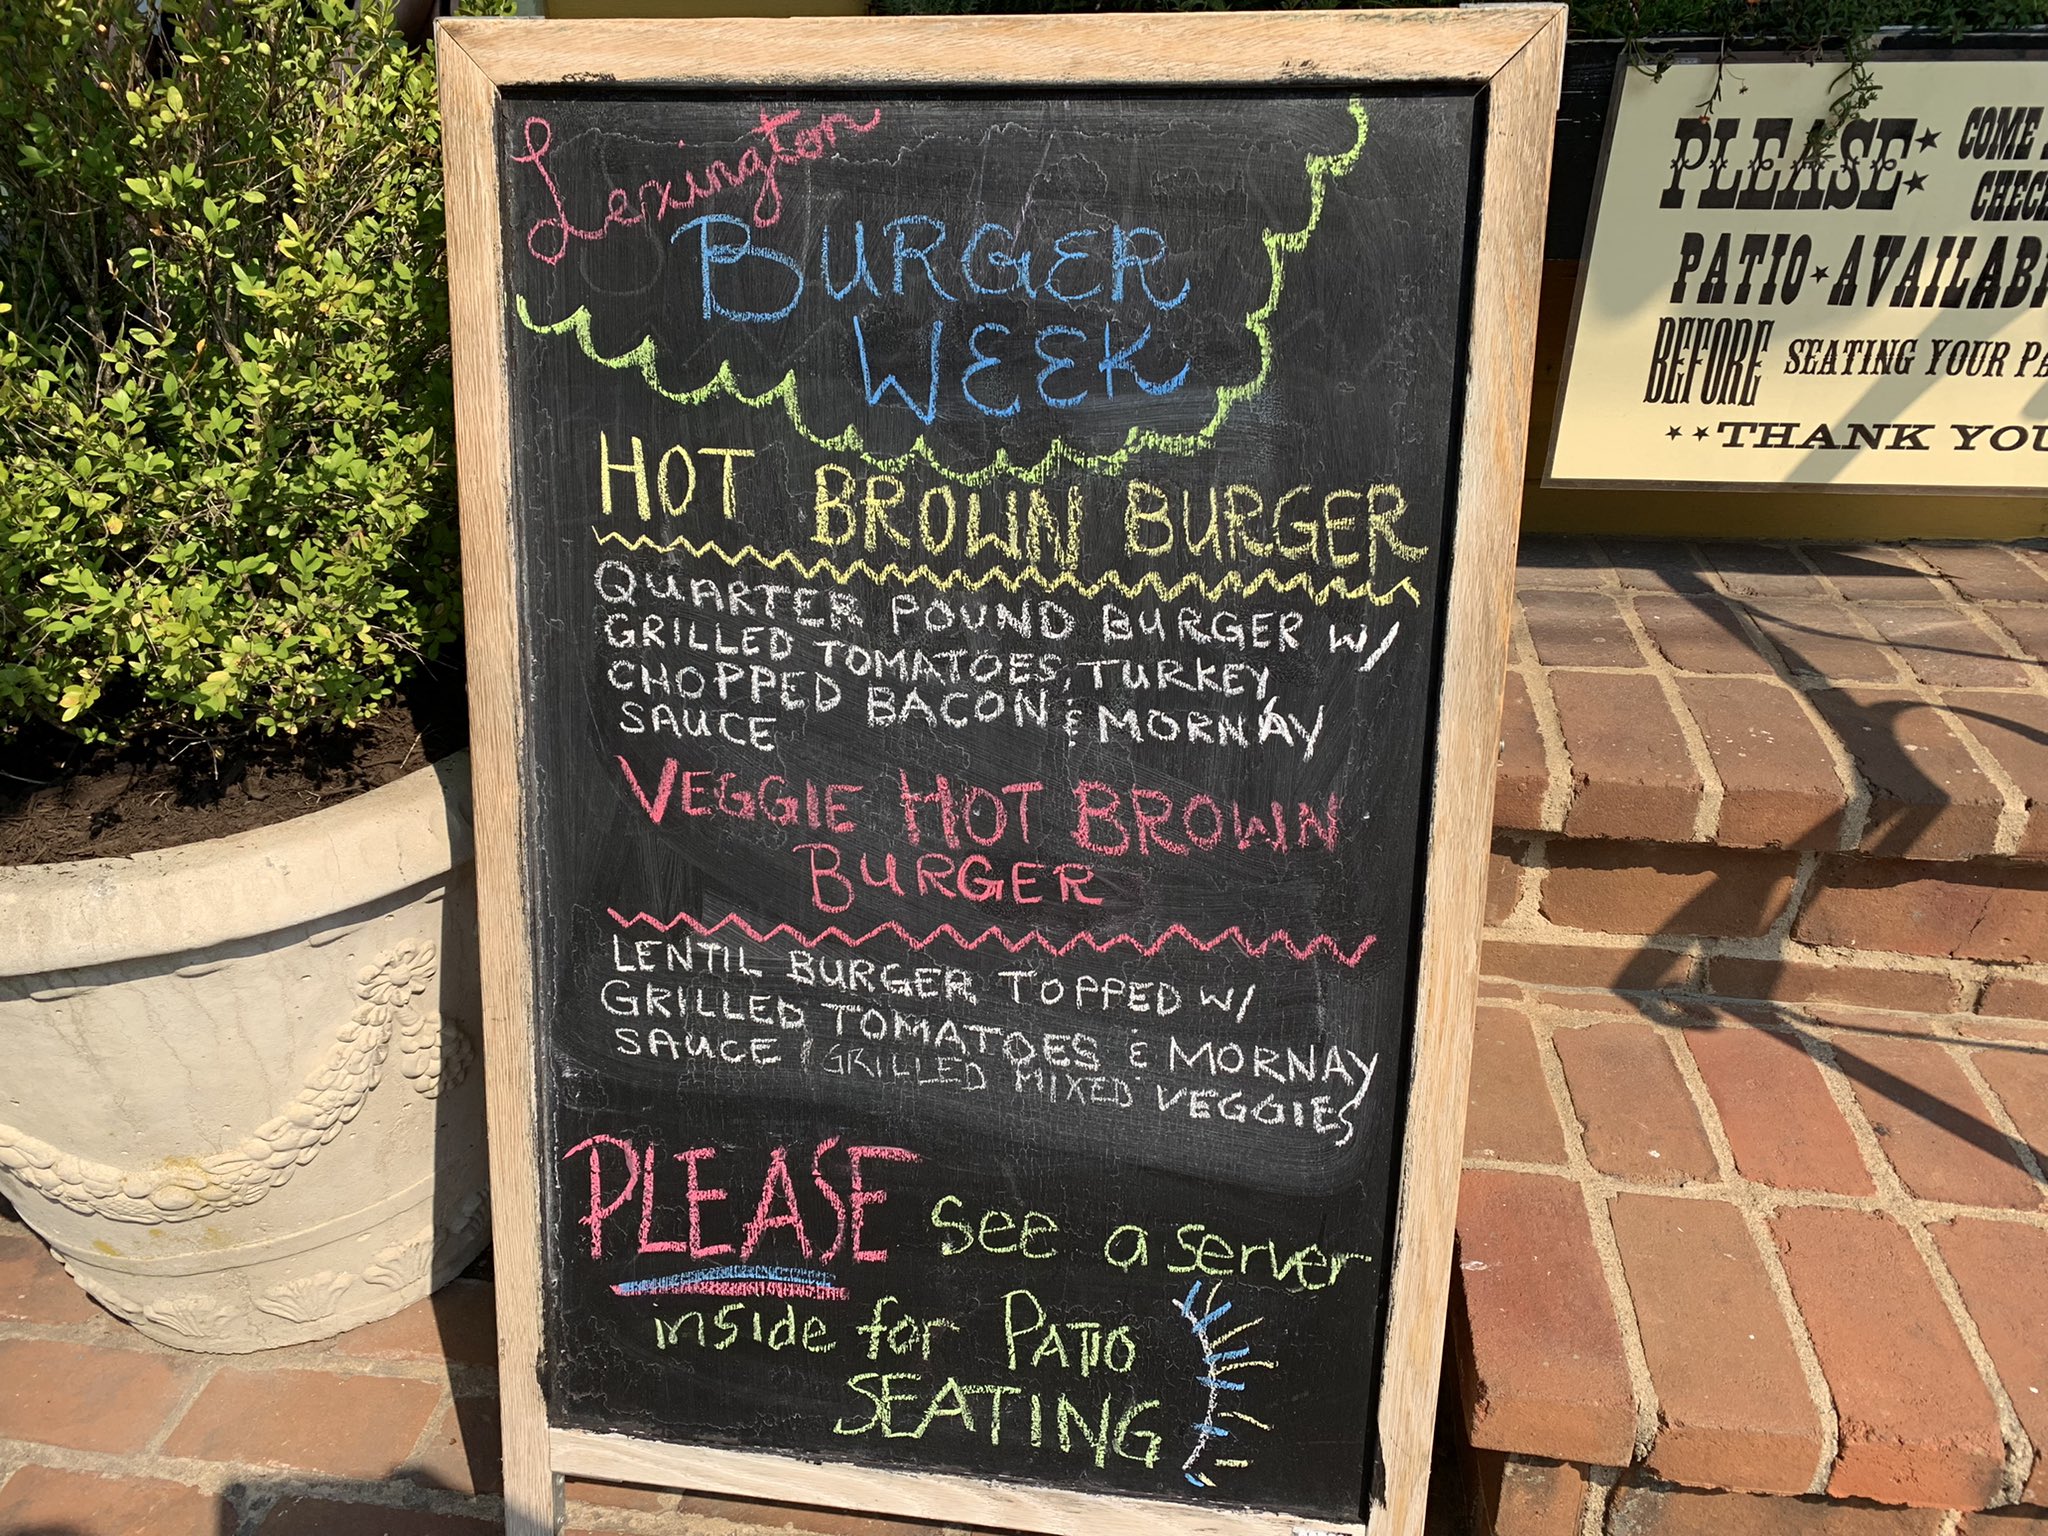 Lexington
BURGER
WEEK
HOT BROWN BURGER
QUARTER POUND BURGER W/
GRILLED TOMATOES, TURKEY,
CHOPPED BACON & MORNAY
SAUCE
VEGGIE HOT BROWN
BURGER
LENTIL BURGER TOPPED W/
GRILLED TOMATOES & MORNAY
SAUCE / GRILLED MIXED VEGGIES
PLEASE see a server
inside for PATIO
SEATING
PLEASE COME
CHECK
PATIO AVAILABI
BEFORE SEATING YOUR PA
THANK YOU